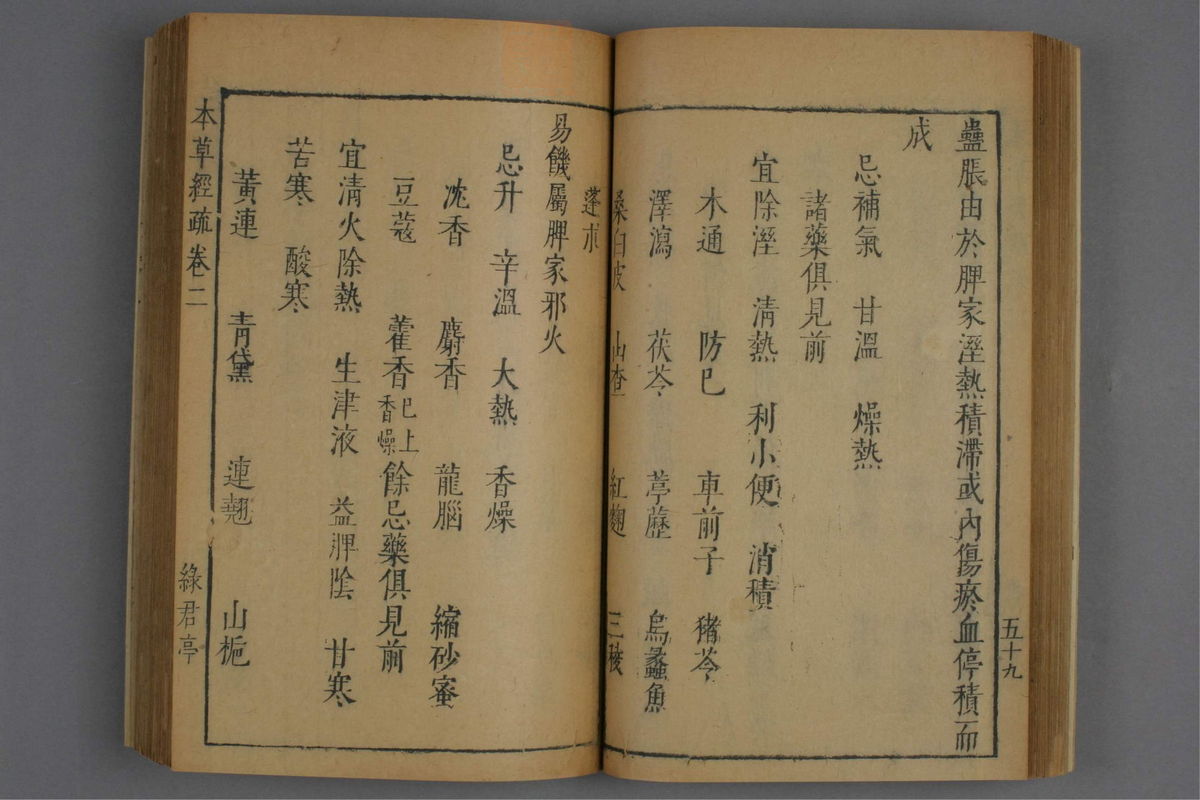 五十九
蠱脹由於脾家溼熱積滯或內傷瘀血停積而
成
忌補氣 甘溫 燥熱
諸藥俱見前
宜除溼 清熱 利小便 消積
木通 防已 車前子 豬苓
澤瀉 茯苓 葶藶 烏蠡魚
桑白皮 山楂 紅麴 三稜
蓬朮
易饑屬脾家邪火
忌升 辛溫 大熱 香燥
沈香 麝香 龍腦 縮砂蜜
豆蔻 藿香已上香燥餘忌藥俱見前
宜清火除熱 生津液 益脾陰 甘寒
苦寒 酸寒
黃連 靑黛 連翹 山梔
本草經疏 卷二
綠君亭